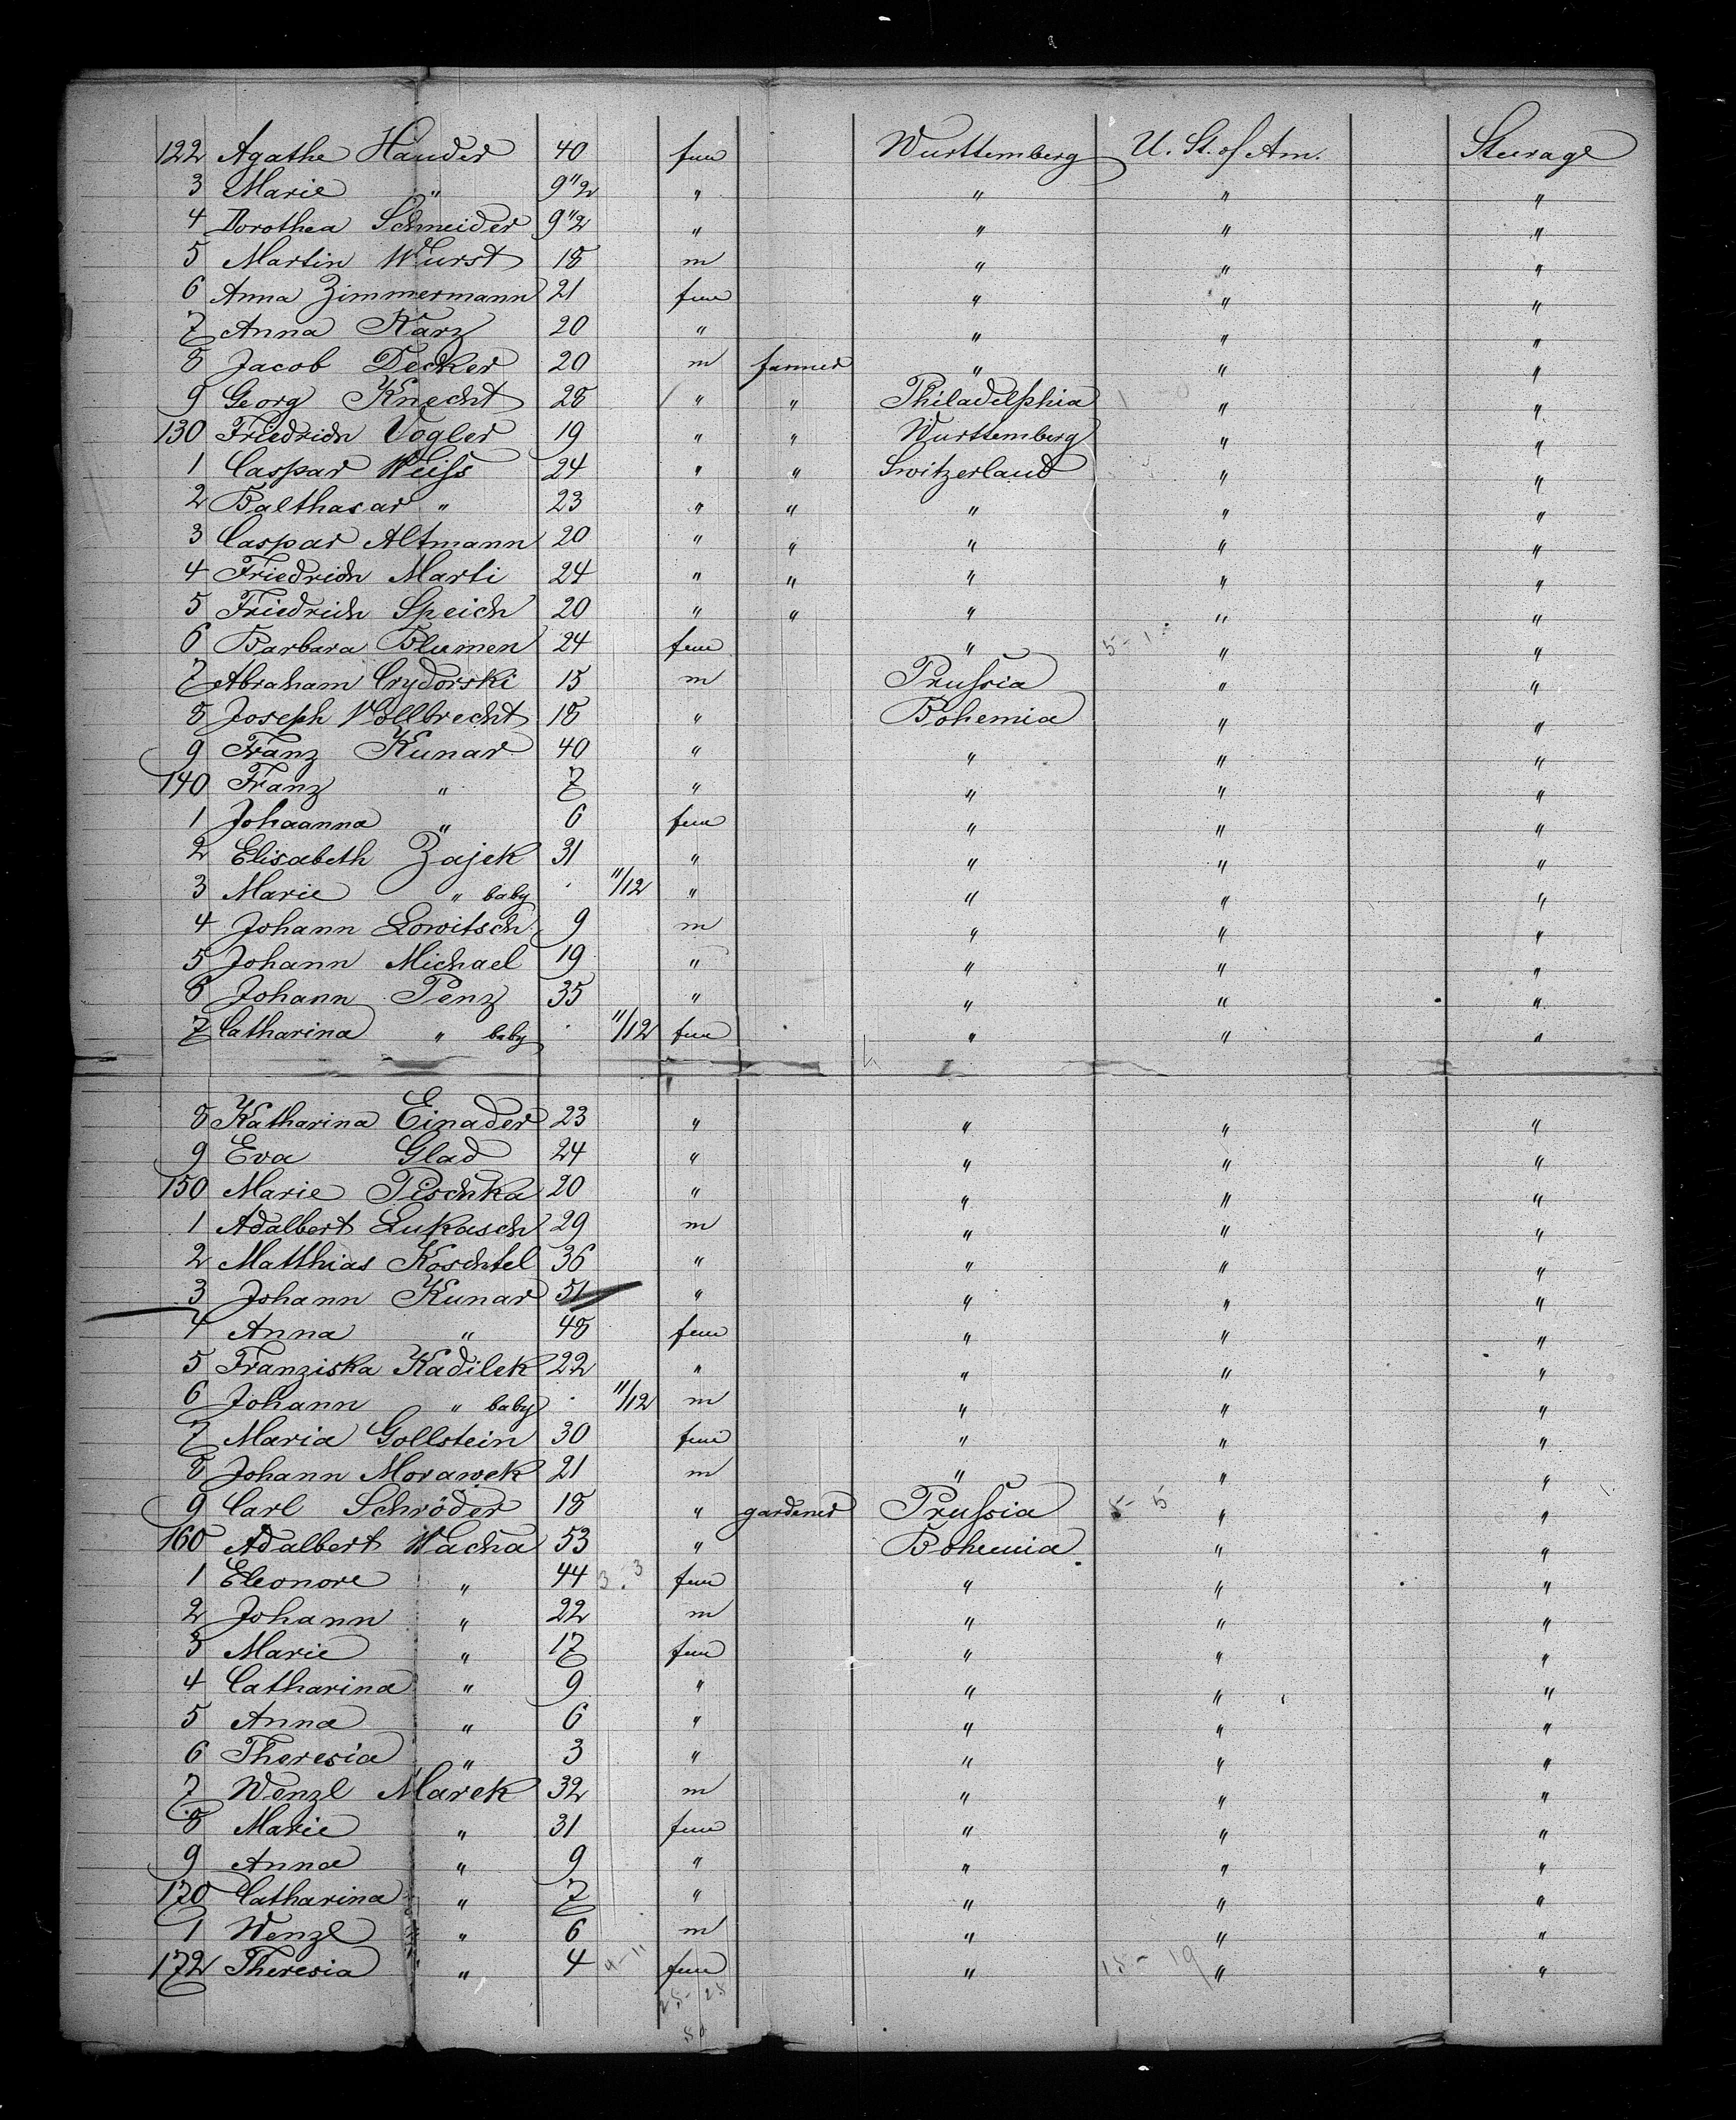 122 Agathe Hauder 40 fem Wurttemberg U. St. of Am. Steerage
3 Marie " 9 1/2 " " " "
4 Dorothea Schneider 9 1/2 " " " "
5 Martin Wurst 18 m " " "
6 Anna Zimmermann 21 fem " " "
7 Anna Karz 20 " " " "
8 Jacob Decker 20 m farmer " " "
9 Georg Knecht 28 " " Philadelphia " "
130 Friedrich Vogler 19 " " Wurttemberg " "
1 Caspar Weiss 24 " " Switzerland " "
2 Balthasar " 23 " " " " "
3 Caspar Altmann 20 " " " " "
4 Friedrich Marti 24 " " " " "
5 Friedrich Speich 20 " " " " "
6 Barbara Blumen 24 fem " " "
7 Abraham Crydorski 15 m Prussia " "
8 Joseph Vollbrecht 18 " Bohemia " "
9 Franz Kunar 40 " " " "
140 Franz " 7 " " " "
1 Johaanna " 6 fem " " "
2 Elisabeth Zajek 31 " " " "
3 Marie " baby 11/12 " " " "
4 Johann Lowitsch 9 m " " "
5 Johann Michael 19 " " " "
6 Johann Penz 35 " " " "
7 Catharina " baby 11/12 fem " " "
8 Katharina Einader 23 " " " "
9 Eva Glad 24 " " " "
150 Marie Pischka 20 " " " "
1 Adalbert Lukasch 29 m " " "
2 Matthias Koschtel 36 " " " "
3 Johann Kunar 51 " " " "
4 Anna " 48 fem " " "
5 Franziska Kadilek 22 " " " "
6 Johann " baby 11/12 m " " "
7 Maria Gollstein 30 fem " " "
8 Johann Morawek 21 m " " "
9 Carl Schröder 18 " gardener Prussia " "
160 Adalbert Wacha 53 " Bohemia " "
1 Eleonore " 44 fem " " "
2 Johann " 22 m " " "
3 Marie " 17 fem " " "
4 Catharina " 9 " " " "
5 Anna " 6 " " " "
6 Theresia " 3 " " " "
7 Wenzl Marek 32 m " " "
8 Marie " 31 fem " " "
9 Anna " 9 " " " "
170 Catharina " 7 " " " "
1 Wenzl " 6 m " " "
172 Theresia " 4 fem 18-19 " " "